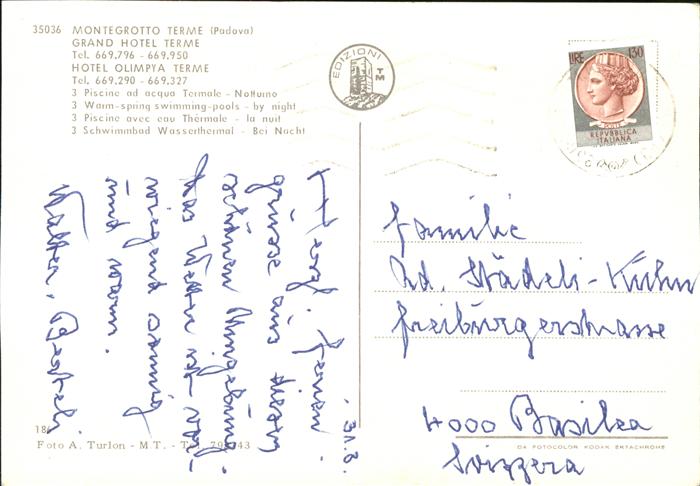 35036 MONTEGROTTO TERME (Padova)
GRAND HOTEL TERME
Tel. 669.796 - 669.950
HOTEL OLIMPYA TERME
Tel. 669.290 - 669.327
3 Piscine ad acqua Termale - Notturno
3 Warm-spring swimming-pools - by night
3 Piscine avec eau Thérmale - la nuit
3 Schwimmbad Wasserthermal - Bei Nacht
EDIZIONI
TM
LIRE 130
REPVBBLICA
ITALIANA
31.8.
Herzl. Ferien-
grüsse aus dieser
schönen Umgebung.
Das Wetter ist vor-
wiegend sonnig
und warm.
Walter,
Familie
Rd. Städeli-Kuhn
Freiburgerstrasse
4000 Basilea
Svizzera
Foto A. Turlon - M.T. - Tel.
DA FOTOCOLOR KODAK EKTACHROME